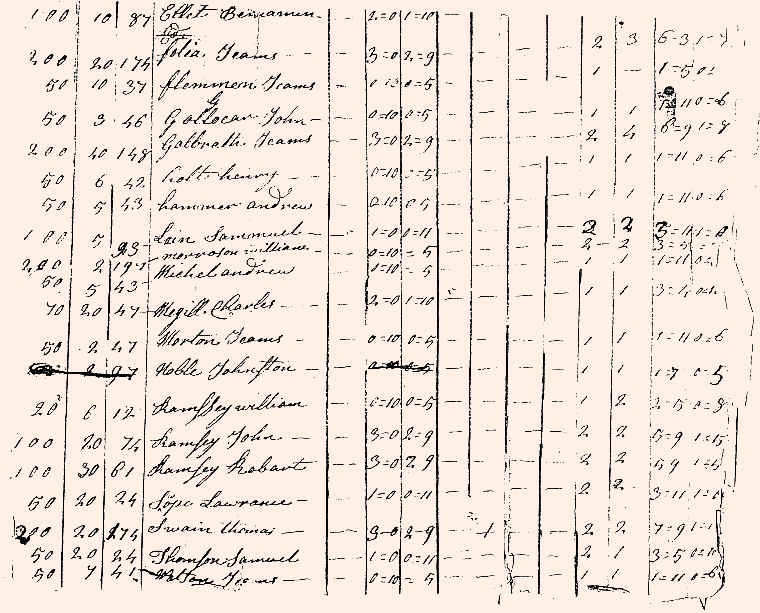 100 10 87 Ellot Beniamen - 2=0 1=10 -
200 20 174 folia Teams - 3=0 2=9 - 2 3 6=3 1=7
50 10 37 flemmen Teams 0 13 0=5 - 1 - 1=5
50 3 46 Gallocar John - 0=10 0=5 - 1 1 11 0=6
200 40 148 Galbrath Teams 3=0 2=9 - 2 4 6=9 1=7
50 6 42 holt henry - 0=10 =5 - 1 1 1=11 0=6
50 5 43 hammer andrew 0 10 0 5 - 1 1 1=11 0=6
100 5 93 Lain Sammuel - 1=0 0=11 - 2 2 3=11 1=0
200 2 197 morroson william 0=10 = 5 - 2 - 2 3=5
50 5 43 Michel andrew 0=10 = 5 - 1 1 1=11 0=
70 20 47 Megill Charles - 2=0 1=10 - 1 1 3=4
50 2 47 Morton Teams - 0=10 0=5 - 1 1 1=11 0=6
2 97 Noble Johnston - 0=10 0=5 - 1 1 1=7 0=5
20 6 12 Ramssey william 0=10 0=5 - 1 2 2=5 0=8
100 20 74 Ramsey John - 3=0 2=9 - 2 2 5=9 1=5
100 30 61 Ramsey Robart - 3=0 2 9 - 2 2 5 9 1=5
50 20 24 Sope Lawrance - 1=0 0=11 - 2 2 3=11
200 20 174 Swain thomas - 3=0 2=9 - 1 - 2 2 7=9
50 20 24 Thomson Samuel 1=0 0=11 - 2 1 3=5
50 7 41 Teams - 0=10 = 5 - 1 1 1=11 0=6